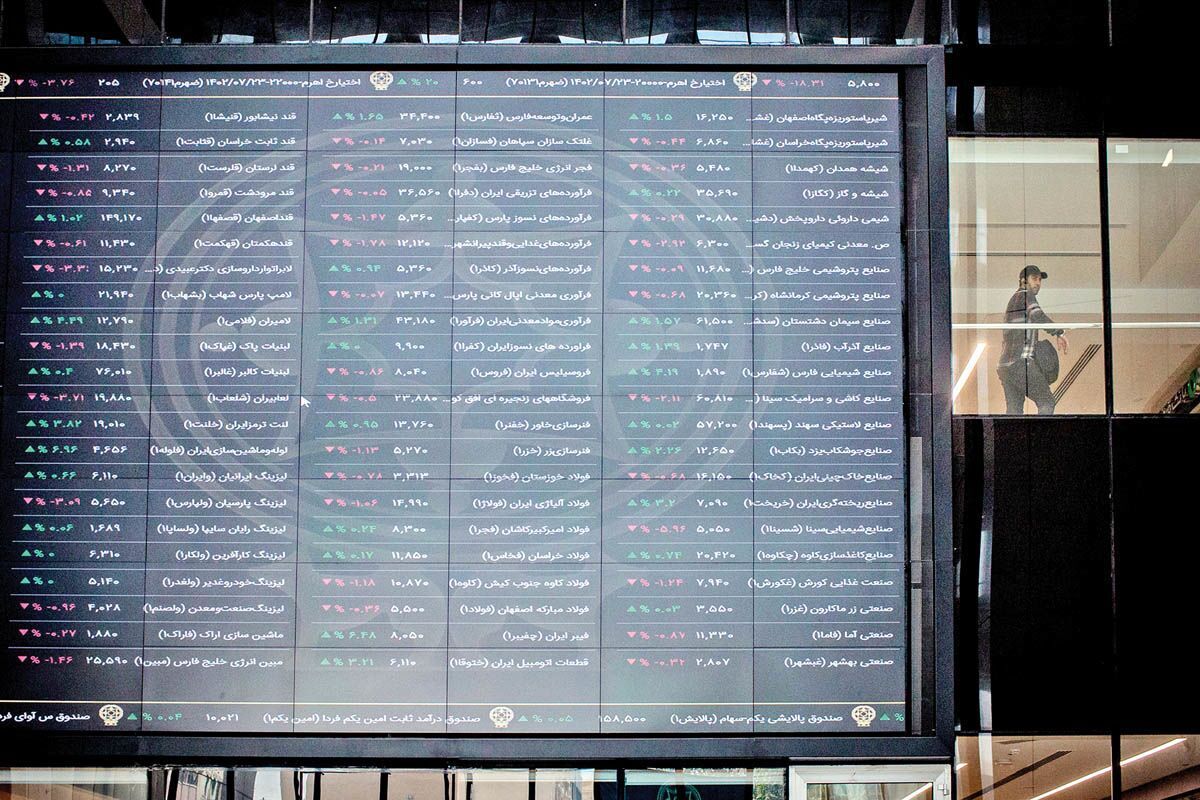 ۵,۸۰۰ ▼ % -۱۸.۳۱ اختیارخ اهرم-۲۰۰۰۰-۱۴۰۲/۰۷/۲۳ (ضهرم۷۰۱۳۱) ۶۰۰ ▲ % ۲۰ اختیارخ اهرم-۲۲۰۰۰-۱۴۰۲/۰۷/۲۳ (ضهرم۷۰۱۴۱) ۲۰۵ ▼ % -۳.۷۶
شیرپاستوریزه‌پگاه‌اصفهان (غش... ۱۶,۲۵۰ ▲ % ۱.۵ عمران‌وتوسعه‌فارس (ثفارس۱) ۳۴,۴۰۰ ▲ % ۱.۶۵ قند نیشابور (قنیشا۱) ۲,۸۳۹ ▼ % -۰.۴۲
شیرپاستوریزه‌پگاه‌خراسان (غشا... ۶,۸۶۰ ▼ % -۰.۴۴ غلتک سازان سپاهان (فسازان۱) ۷,۰۳۰ ▼ % -۰.۱۴ قند ثابت خراسان (قثابت۱) ۲,۹۴۰ ▲ % ۰.۵۸
شیشه همدان (کهمدا۱) ۵,۴۸۰ ▼ % -۰.۳۶ فجر انرژی خلیج فارس (بفجر۱) ۱۹,۰۰۰ ▼ % -۰.۲۱ قند لرستان (قلرست۱) ۸,۲۷۰ ▼ % -۱.۳۱
شیشه و گاز (کگاز۱) ۳۵,۶۹۰ ▲ % ۰.۲۲ فرآورده‌های تزریقی ایران (دفرا۱) ۳۶,۵۶۰ ▼ % -۰.۰۵ قند مرودشت (قمرو۱) ۹,۳۴۰ ▼ % -۰.۸۵
شیمی داروئی داروپخش (دشی... ۳۰,۸۸۰ ▼ % -۰.۲۹ فرآورده‌های نسوز پارس (کفپار... ۵,۳۶۰ ▼ % -۱.۴۷ قنداصفهان (قصفها۱) ۱۴۹,۱۷۰ ▲ % ۱.۰۲
ص. معدنی کیمیای زنجان گس... ۶,۳۰۰ ▼ % -۲.۹۲ فرآورده‌های‌غذایی‌وقندپیرانشهر... ۱۲,۱۲۰ ▼ % -۱.۷۸ قندهکمتان (قهکمت۱) ۱۱,۴۳۰ ▼ % -۰.۶۱
صنایع پتروشیمی خلیج فارس (... ۱۱,۶۸۰ ▼ % -۰.۰۹ فرآورده‌های‌نسوزآذر (کاذر۱) ۵,۳۶۰ ▲ % ۰.۹۴ لابراتوارداروسازی دکترعبیدی (د... ۱۵,۲۳۰
صنایع پتروشیمی کرمانشاه (کر... ۲۰,۳۶۰ ▼ % -۰.۶۸ فرآوری معدنی اپال کانی پارس... ۱۳,۴۴۰ ▼ % -۰.۰۷ لامپ پارس شهاب (بشهاب۱) ۲۱,۹۴۰ ▲ % ۰
صنایع سیمان دشتستان (سدش... ۶۱,۵۰۰ ▲ % ۱.۵۷ فرآوری‌موادمعدنی‌ایران (فرآور۱) ۴۳,۱۸۰ ▲ % ۱.۳۱ لامیران (فلامی۱) ۱۲,۷۹۰ ▲ % ۴.۴۹
صنایع آذرآب (فاذر۱) ۱,۷۴۷ ▲ % ۱.۳۹ فراورده های نسوزایران (کفرا۱) ۹,۹۰۰ ▲ % ۰ لبنیات پاک (غپاک۱) ۱۸,۴۳۰ ▼ % -۱.۳۹
صنایع شیمیایی فارس (شفارس۱) ۱,۸۹۰ ▲ % ۴.۱۹ فروسیلیس ایران (فروس۱) ۸,۰۴۰ ▼ % -۰.۸۶ لبنیات کالبر (غالبر۱) ۷۶,۰۱۰ ▲ % ۰.۴
صنایع کاشی و سرامیک سینا (... ۶۰,۸۱۰ ▼ % -۲.۱۱ فروشگاههای زنجیره ای افق کو... ۲۳,۸۸۰ ▼ % -۰.۵ لعابیران (شلعاب۱) ۱۹,۸۸۰ ▼ % -۳.۷۱
صنایع لاستیکی سهند (پسهند۱) ۵۷,۲۰۰ ▲ % ۰.۰۲ فنرسازی‌خاور (خفنر۱) ۱۳,۷۶۰ ▲ % ۰.۹۵ لنت ترمزایران (خلنت۱) ۱۹,۰۱۰ ▲ % ۳.۸۲
صنایع‌جوشکاب‌یزد (بکاب۱) ۱۲,۶۵۰ ▲ % ۲.۲۶ فنرسازی‌زر (خزر۱) ۵,۲۷۰ ▼ % -۱.۱۳ لوله‌وماشین‌سازی‌ایران (فلوله۱) ۴,۶۵۶ ▲ % ۶.۹۶
صنایع‌خاک‌چینی‌ایران (کخاک۱) ۱۶,۱۵۰ ▼ % -۰.۶۸ فولاد خوزستان (فخوز۱) ۳,۳۱۳ ▼ % -۰.۷۸ لیزینگ ایرانیان (وایران۱) ۶,۱۱۰ ▲ % ۰.۶۶
صنایع‌ریخته‌گری‌ایران (خریخت۱) ۷,۰۹۰ ▲ % ۳.۲ فولاد آلیاژی ایران (فولاژ۱) ۱۴,۹۹۰ ▼ % -۱.۰۶ لیزینگ پارسیان (ولپارس۱) ۵,۶۵۰ ▼ % -۳.۰۹
صنایع‌شیمیایی‌سینا (شسینا۱) ۵,۰۵۰ ▼ % -۵.۹۶ فولاد امیرکبیرکاشان (فجر۱) ۸,۳۰۰ ▲ % ۰.۲۴ لیزینگ رایان سایپا (ولساپا۱) ۱,۶۸۹ ▲ % ۰.۰۶
صنایع‌کاغذسازی‌کاوه (چکاوه۱) ۲۰,۴۲۰ ▲ % ۰.۷۴ فولاد خراسان (فخاس۱) ۱۱,۸۵۰ ▲ % ۰.۱۷ لیزینگ کارآفرین (ولکار۱) ۶,۳۱۰ ▲ % ۰
صنعت غذایی کورش (غکورش۱) ۷,۹۴۰ ▼ % -۱.۲۴ فولاد کاوه جنوب کیش (کاوه۱) ۱۰,۸۷۰ ▼ % -۱.۱۸ لیزینگ‌خودروغدیر (ولغدر۱) ۵,۱۴۰ ▲ % ۰
صنعتی زر ماکارون (غزر۱) ۳,۵۵۰ ▲ % ۰.۰۳ فولاد مبارکه اصفهان (فولاد۱) ۵,۵۰۰ ▼ % -۰.۳۶ لیزینگ‌صنعت‌ومعدن (ولصنم۱) ۴,۰۲۸ ▼ % -۰.۹۶
صنعتی آما (فاما۱) ۱۱,۳۳۰ ▼ % -۰.۸۷ فیبر ایران (چفیبر۱) ۸,۰۵۰ ▲ % ۶.۴۸ ماشین سازی اراک (فاراک۱) ۱,۸۸۰ ▼ % -۰.۲۷
صنعتی بهشهر (غبشهر۱) ۲,۸۰۷ ▼ % -۰.۳۲ قطعات اتومبیل ایران (ختوقا۱) ۶,۱۱۰ ▲ % ۳.۲۱ مبین انرژی خلیج فارس (مبین۱) ۲۵,۵۹۰ ▼ % -۱.۴۶
▲ % صندوق پالایشی یکم-سهام (پالایش۱) ۱۵۸,۵۰۰ ▲ % ۰.۰۵ صندوق درآمد ثابت امین یکم فردا (امین یکم۱) ۱۰,۰۲۱ ▲ % ۰.۰۴ صندوق س آوای فر